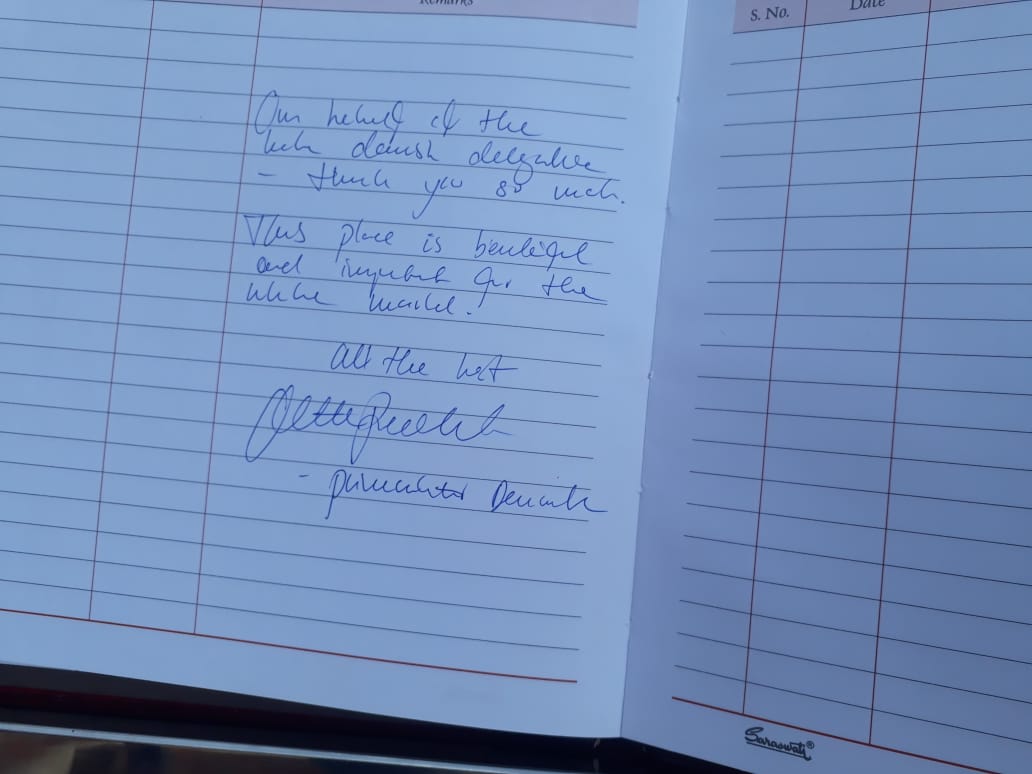 Remarks
S. No.
Date
Our behalf of the
danish delegation
- thank you so much.
This place is beautiful
and important for the
whole world.
All the best
- Denmark
Saraswati®